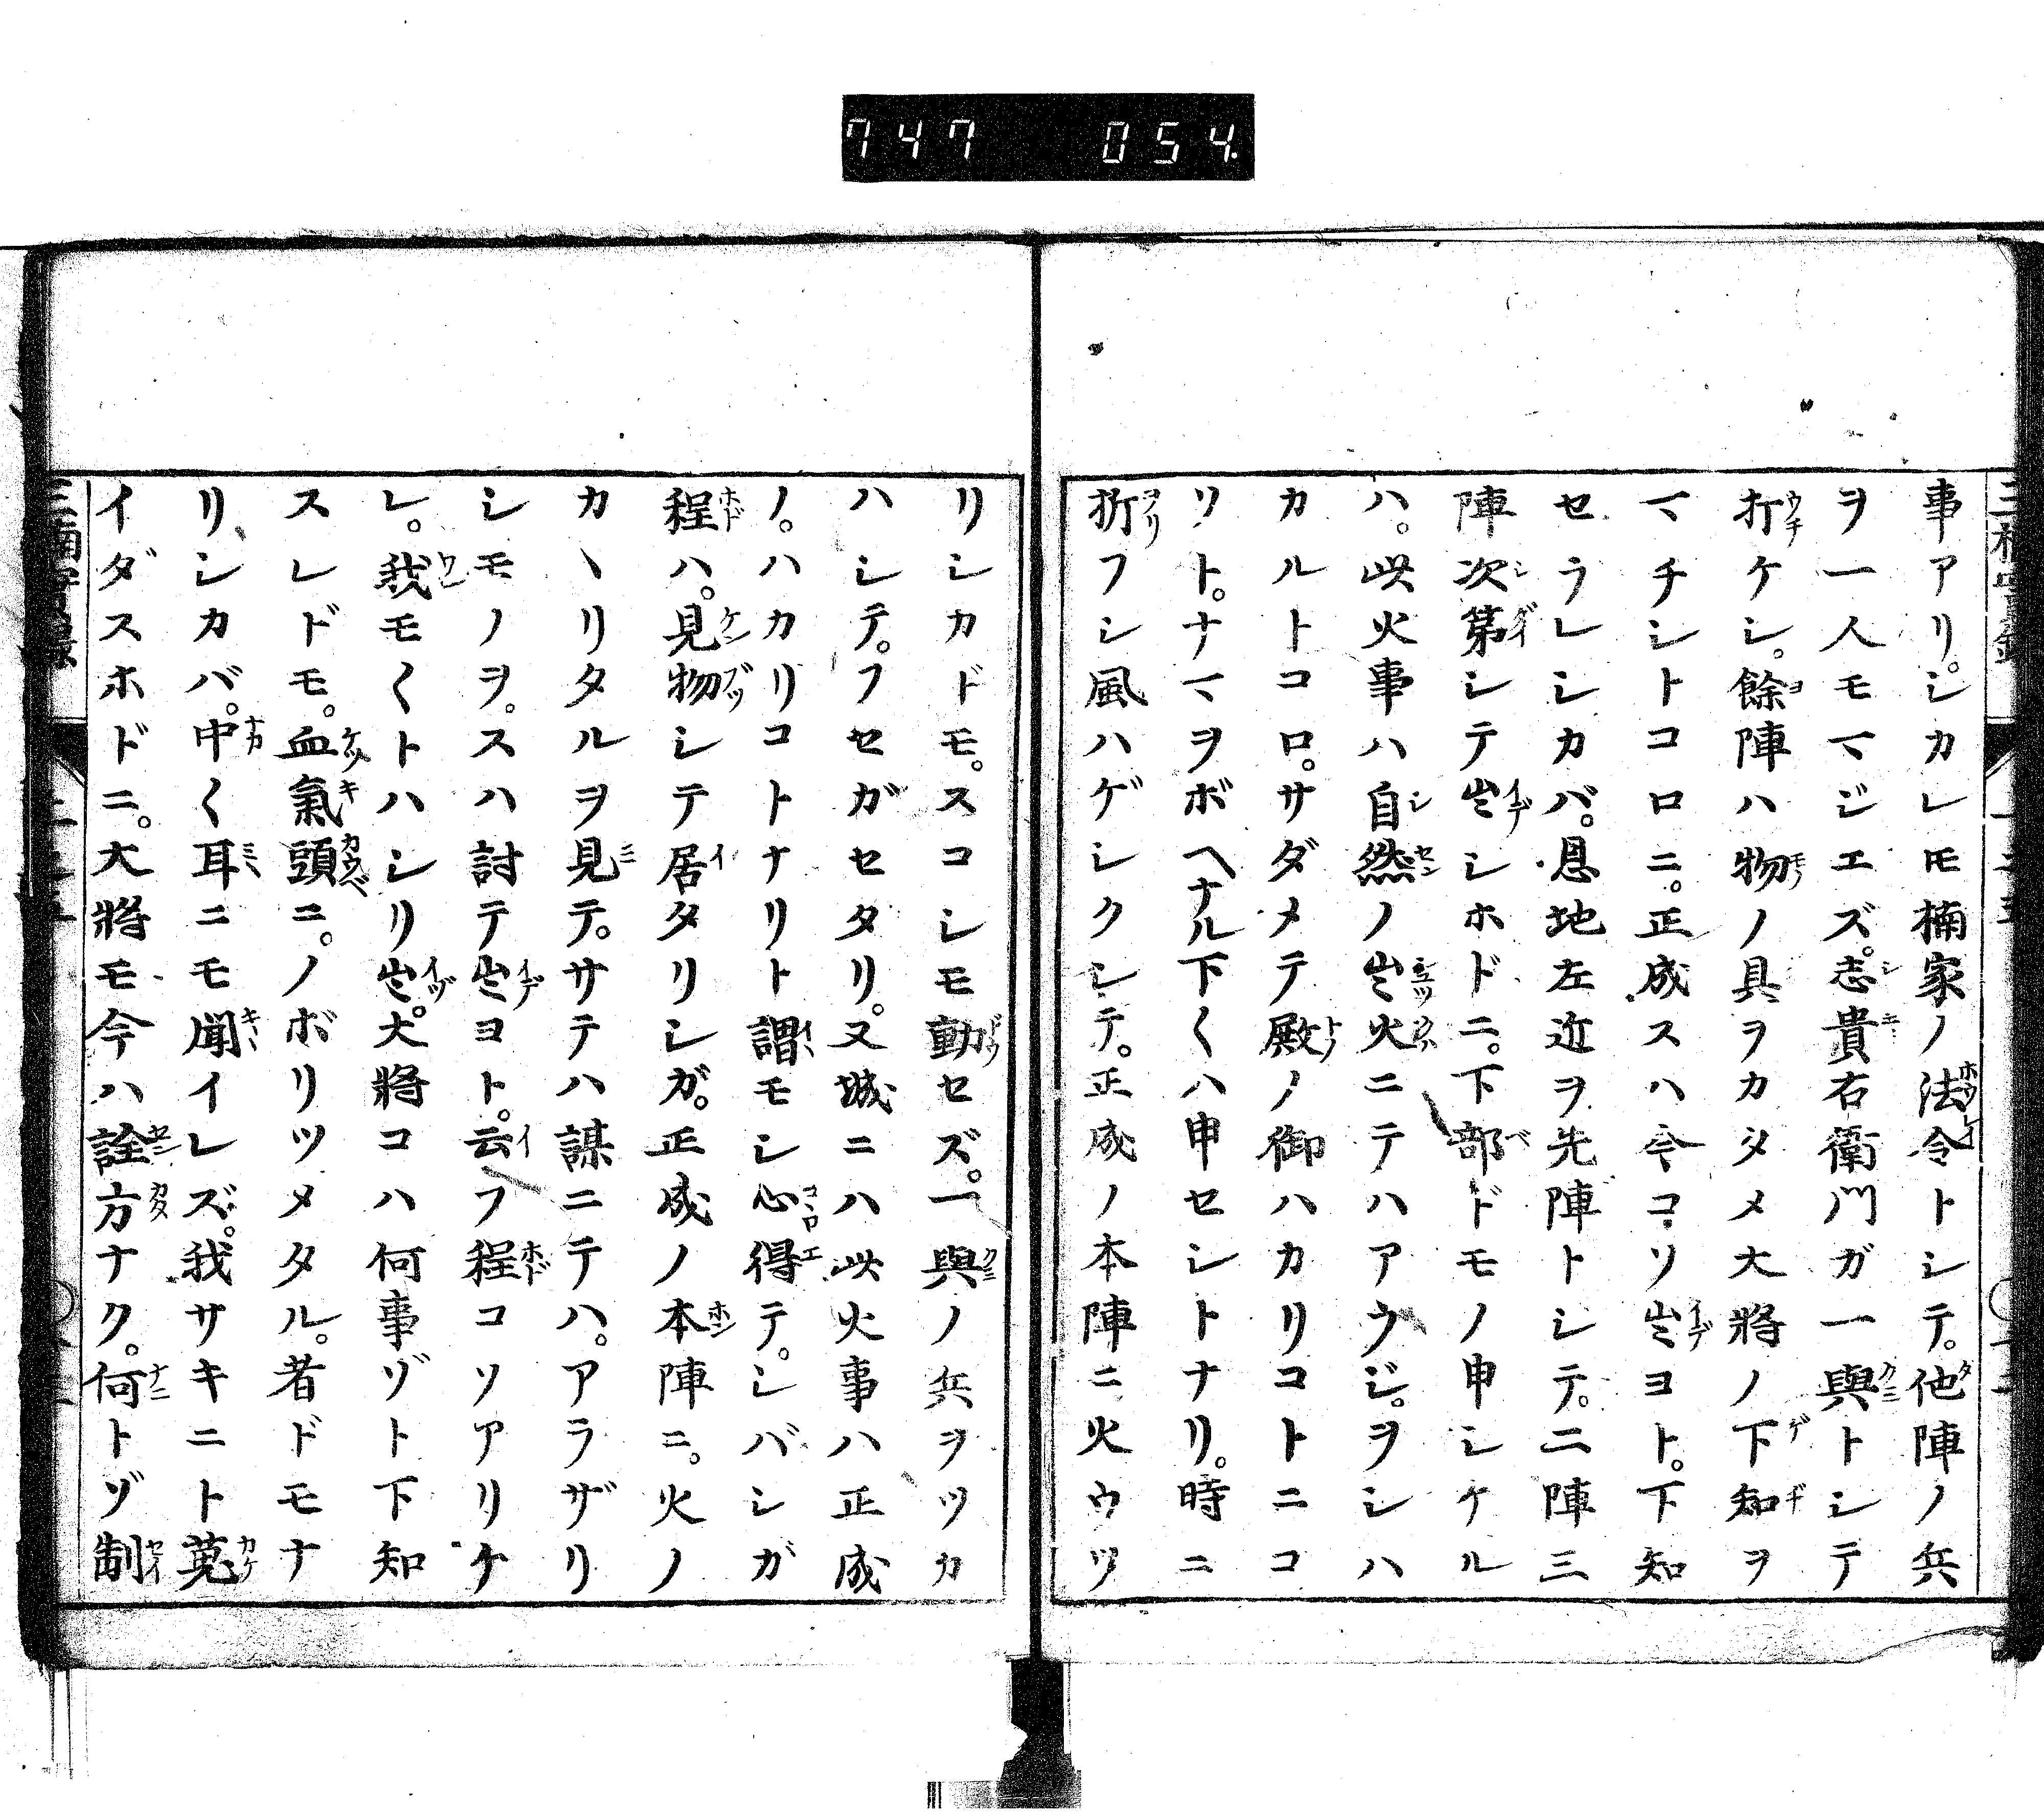 747 054.
事アリ。シカレモ楠家ノ法令トシテ。他陣ノ兵
ヲ一人モマジエズ。志貴右衛門ガ一與トシテ
折ケシ。餘陣ハ物ノ具ヲカタメ大將ノ下知ヲ
マチシトコロニ。正成スハ今コソ出ヨト。下知
セラレシカバ。恩地左近ヲ先陣トシテ。二陣三
陣次第シテ出シホドニ。下部ドモノ申シケル
ハ。此火事ハ自然ノ出火ニテハアラジ。ヲシハ
カルトコロ。サダメテ殿ノ御ハカリコトニコ
ソト。ナマヲボヘナル下〱ハ申セシトナリ。時ニ
折フシ風ハゲシクシテ。正成ノ本陣ニ火ウツ
リシカドモ。スコシモ動セズ。一與ノ兵ヲツカ
ハシテ。フセガセタリ。又城ニハ此火事ハ正成
ノ。ハカリコトナリト謂モシ心得テ。シバシガ
程ハ。見物シテ居タリシガ。正成ノ本陣ニ。火ノ
カヽリタルヲ見テ。サテハ謀ニテハ。アラザリ
シモノヲ。スハ討テ出ヨト。云フ程コソアリケ
レ。我モ〱トハシリ出。大將コハ何事ゾト下知
スレドモ。血氣頭ニ。ノボリツメタル。者ドモナ
リシカバ。中〱耳ニモ聞イレズ。我サキニト蒐
イダスホドニ。大將モ今ハ詮方ナク。何トゾ制